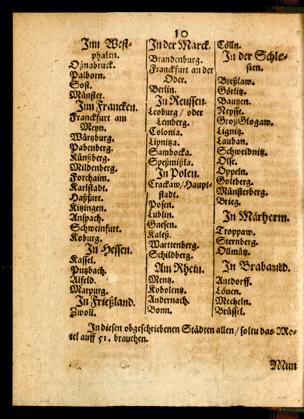 10
Inn West-
phalen.
Oßnabruck.
Palborn.
Sost.
Münster.
Jnn Francken.
Franckfurt am
Meyn.
Würtzburg.
Pabenberg.
Künßberg.
Mildenberg.
Forchaim.
Karlstatt.
Haßfurt.
Kitzingen.
Anspach.
Schweinfurt.
Koburg.
In Hessen.
Kassel.
Putzbach.
Alfeld.
Marpurg.
In Frießland.
Zwoll.
In der Marck.
Brandenburg.
Franckfurt an der
Oder.
Berlin.
In Reussen.
Leoburg / oder
Lemberg.
Colonia.
Lipnitza.
Sambocka.
Speßmißla.
In Polen.
Crackaw/Haupt-
stadt.
Posen.
Lublin.
Gnesen.
Kaleß.
Warttenberg.
Schildberg.
Am Rhein.
Mentz.
Kobolentz.
Andernach.
Bonn.
Cölln.
In der Schle-
sien.
Breßlaw.
Görlitz.
Bautzen.
Neysse.
Groß Glogaw.
Lignitz.
Lauban.
Schweidnitz.
Olse.
Oppeln.
Goltberg.
Münsterberg.
Brieg.
In Märherrn.
Troppaw.
Sternberg.
Ollmütz.
In Brabandt.
Antdorff.
Löuen.
Mecheln.
Brüssel.
In diesen obgeschriebenen Städten allen / soltu das Mo-
tel auff 51. brauchen.
Mun